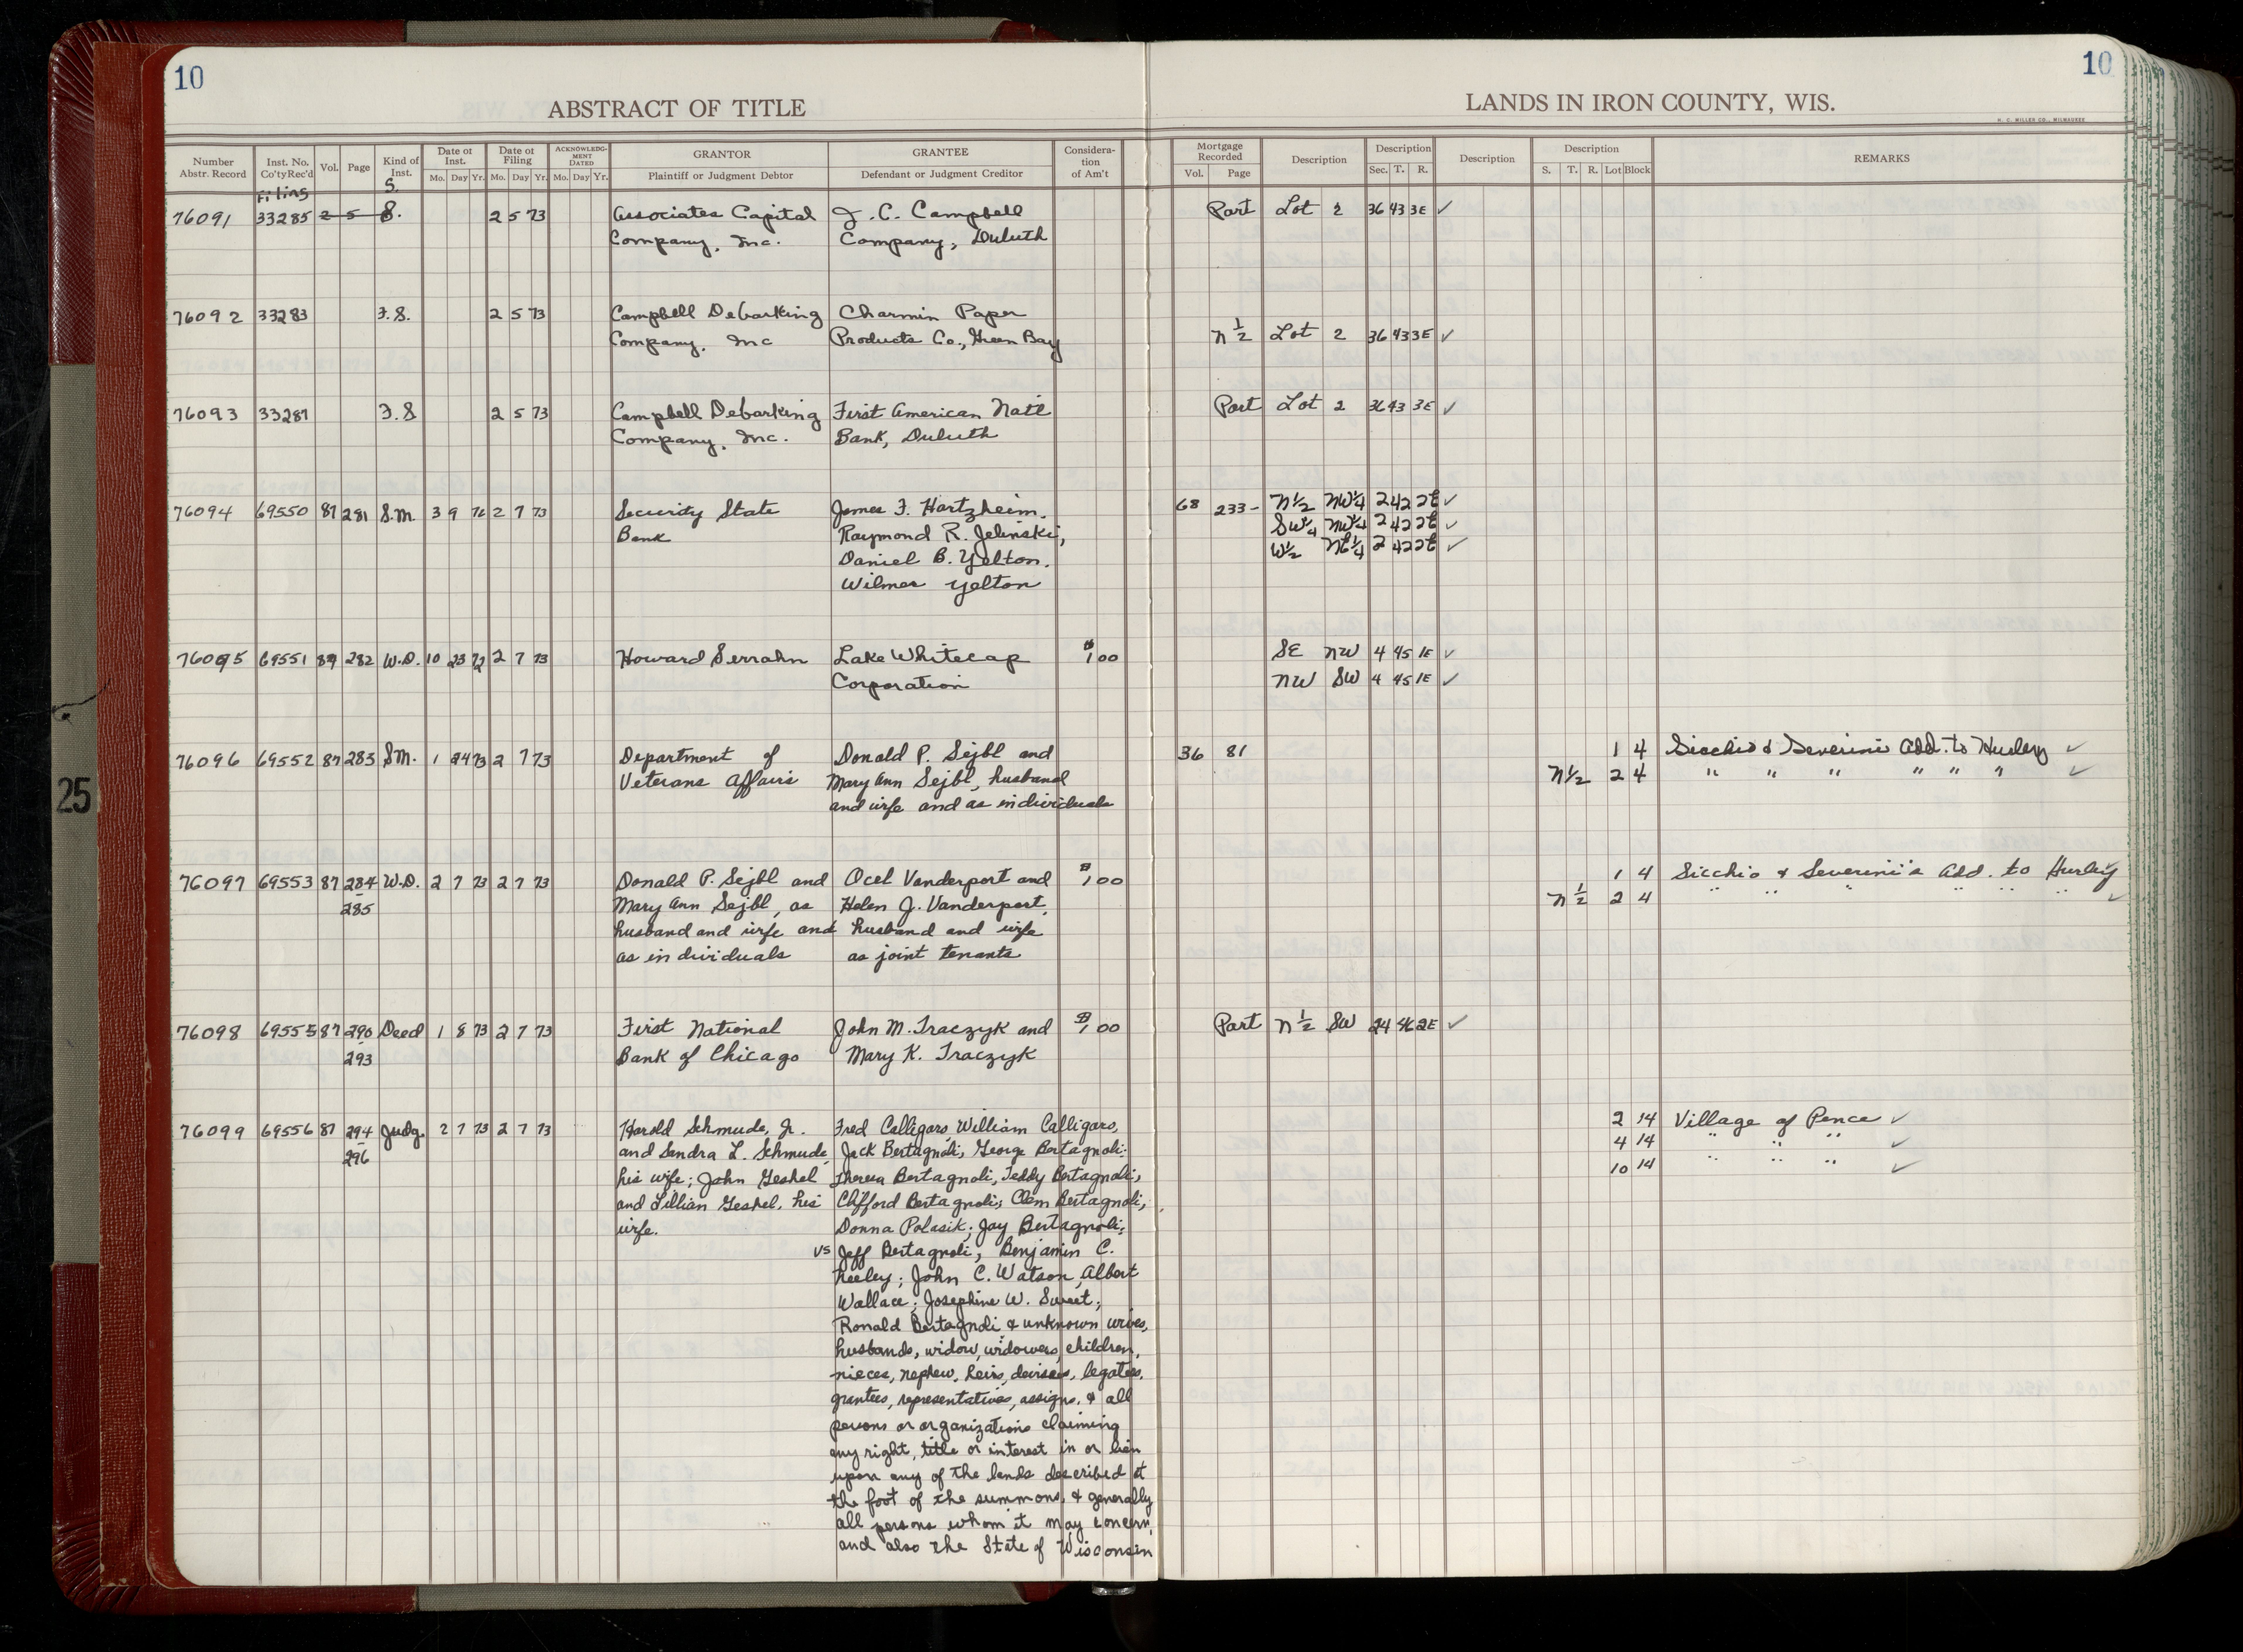 10
10
ABSTRACT OF TITLE
LANDS IN IRON COUNTY, WIS.
H. C. MILLER CO., MILWAUKEE
Number Abstr. Record | Inst. No. Co'ty Rec'd | Vol. | Page | Kind of Inst. | Date of Inst. Mo. Day Yr. | Date of Filing Mo. Day Yr. | ACKNOWLEDGMENT DATED Mo. Day Yr. | GRANTOR Plaintiff or Judgment Debtor | GRANTEE Defendant or Judgment Creditor | Consideration of Am't | Mortgage Recorded Vol. Page | Description | Description Sec. T. R. | Description | Description S. T. R. Lot Block | REMARKS
Filing S.
76091 33285 2 5 S. 2 5 73 Associates Capital J. C. Campbell Part Lot 2 36 43 3E ✓
Company, Inc. Company, Duluth
76092 33283 F.S. 2 5 73 Campbell Debarking Charmin Paper
Company, Inc Products Co., Green Bay N 1/2 Lot 2 36 43 3E ✓
76093 33287 F.S 2 5 73 Campbell Debarking First American Nat'l Part Lot 2 36 43 3E ✓
Company, Inc. Bank, Duluth
76094 69550 87 281 S.M. 3 9 2 7 73 Security State James F. Hartzheim, 68 233- N1/2 NW1/4 2 42 2E ✓
Bank Raymond R. Jelinski, SW1/4 NW1/4 2 42 2E ✓
Daniel B. Yelton, W1/2 NE1/4 2 42 2E ✓
Wilmer Yelton
76095 69551 87 282 W.D. 10 23 72 2 7 73 Howard Serrahn Lake Whitecap $1 00 SE NW 4 45 1E ✓
Corporation NW SW 4 45 1E ✓
76096 69552 87 283 SM. 1 24 73 2 7 73 Department of Donald P. Sejbl and 36 81 1 4 Sicchio & Severini Add. to Hurley ✓
Veterans Affairs Mary Ann Sejbl, husband N1/2 2 4 " " " " " " ✓
and wife and as individuals
76097 69553 87 284 W.D. 2 7 73 2 7 73 Donald P. Sejbl and Ocel Vanderport and $1 00 1 4 Sicchio & Severini's Add. to Hurley
285 Mary Ann Sejbl, as Helen J. Vanderport, N 1/2 2 4 " " " " " " ✓
husband and wife and husband and wife
as individuals as joint tenants
76098 69555 87 290 Deed 1 8 73 2 7 73 First National John M. Traczyk and $1 00 Part N 1/2 SW 24 46 2E ✓
293 Bank of Chicago Mary K. Traczyk
76099 69556 87 294 Judg. 2 7 73 2 7 73 Harold Schmude, Jr. Fred Calligaro, William Calligaro, 2 14 Village of Pence ✓
296 and Sandra L. Schmude, Jack Bertagnoli, George Bertagnoli; 4 14 " " " ✓
his wife; John Geshel Theresa Bertagnoli, Teddy Bertagnoli; 10 14 " " " ✓
and Lillian Geshel, his Clifford Bertagnoli; Clem Bertagnoli;
wife. Donna Polasik; Jay Bertagnoli;
vs Jeff Bertagnoli; Benjamin C.
Neeley; John C. Watson, Albert
Wallace; Josephine W. Sweet;
Ronald Bertagnoli & unknown wives,
husbands, widow, widowers, children,
nieces, nephew, heirs, devisees, legatees,
grantees, representatives, assigns, & all
persons or organizations claiming
any right, title or interest in or lien
upon any of the lands described at
the foot of the summons, & generally
all persons whom it may concern,
and also the State of Wisconsin
25